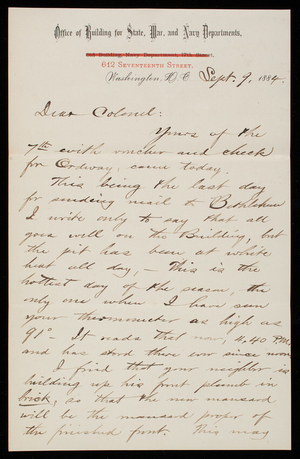 Office of Building for State, War, and Navy Departments,
Old Building, Navy Department, 17th Street,
612 SEVENTEENTH STREET.
Washington, D.C. Sept. 9, 1884.
Dear Colonel:
Yours of the
7th with voucher and check
for Ordway, came today.
This being the last day
for sending mail to Bethlehem
I write only to say that all
goes well on the Building, but
the pit has been at white
heat all day, – This is the
hottest day of the season, the
only one when I have seen
your thermometer as high as
91° – It reads that now, 4.40 P.M.
and has stood there ever since noon
I find that your neighbor is
building up his front planed in
brick, so that the new mansard
will be the mansard proper of
the finished front. This may